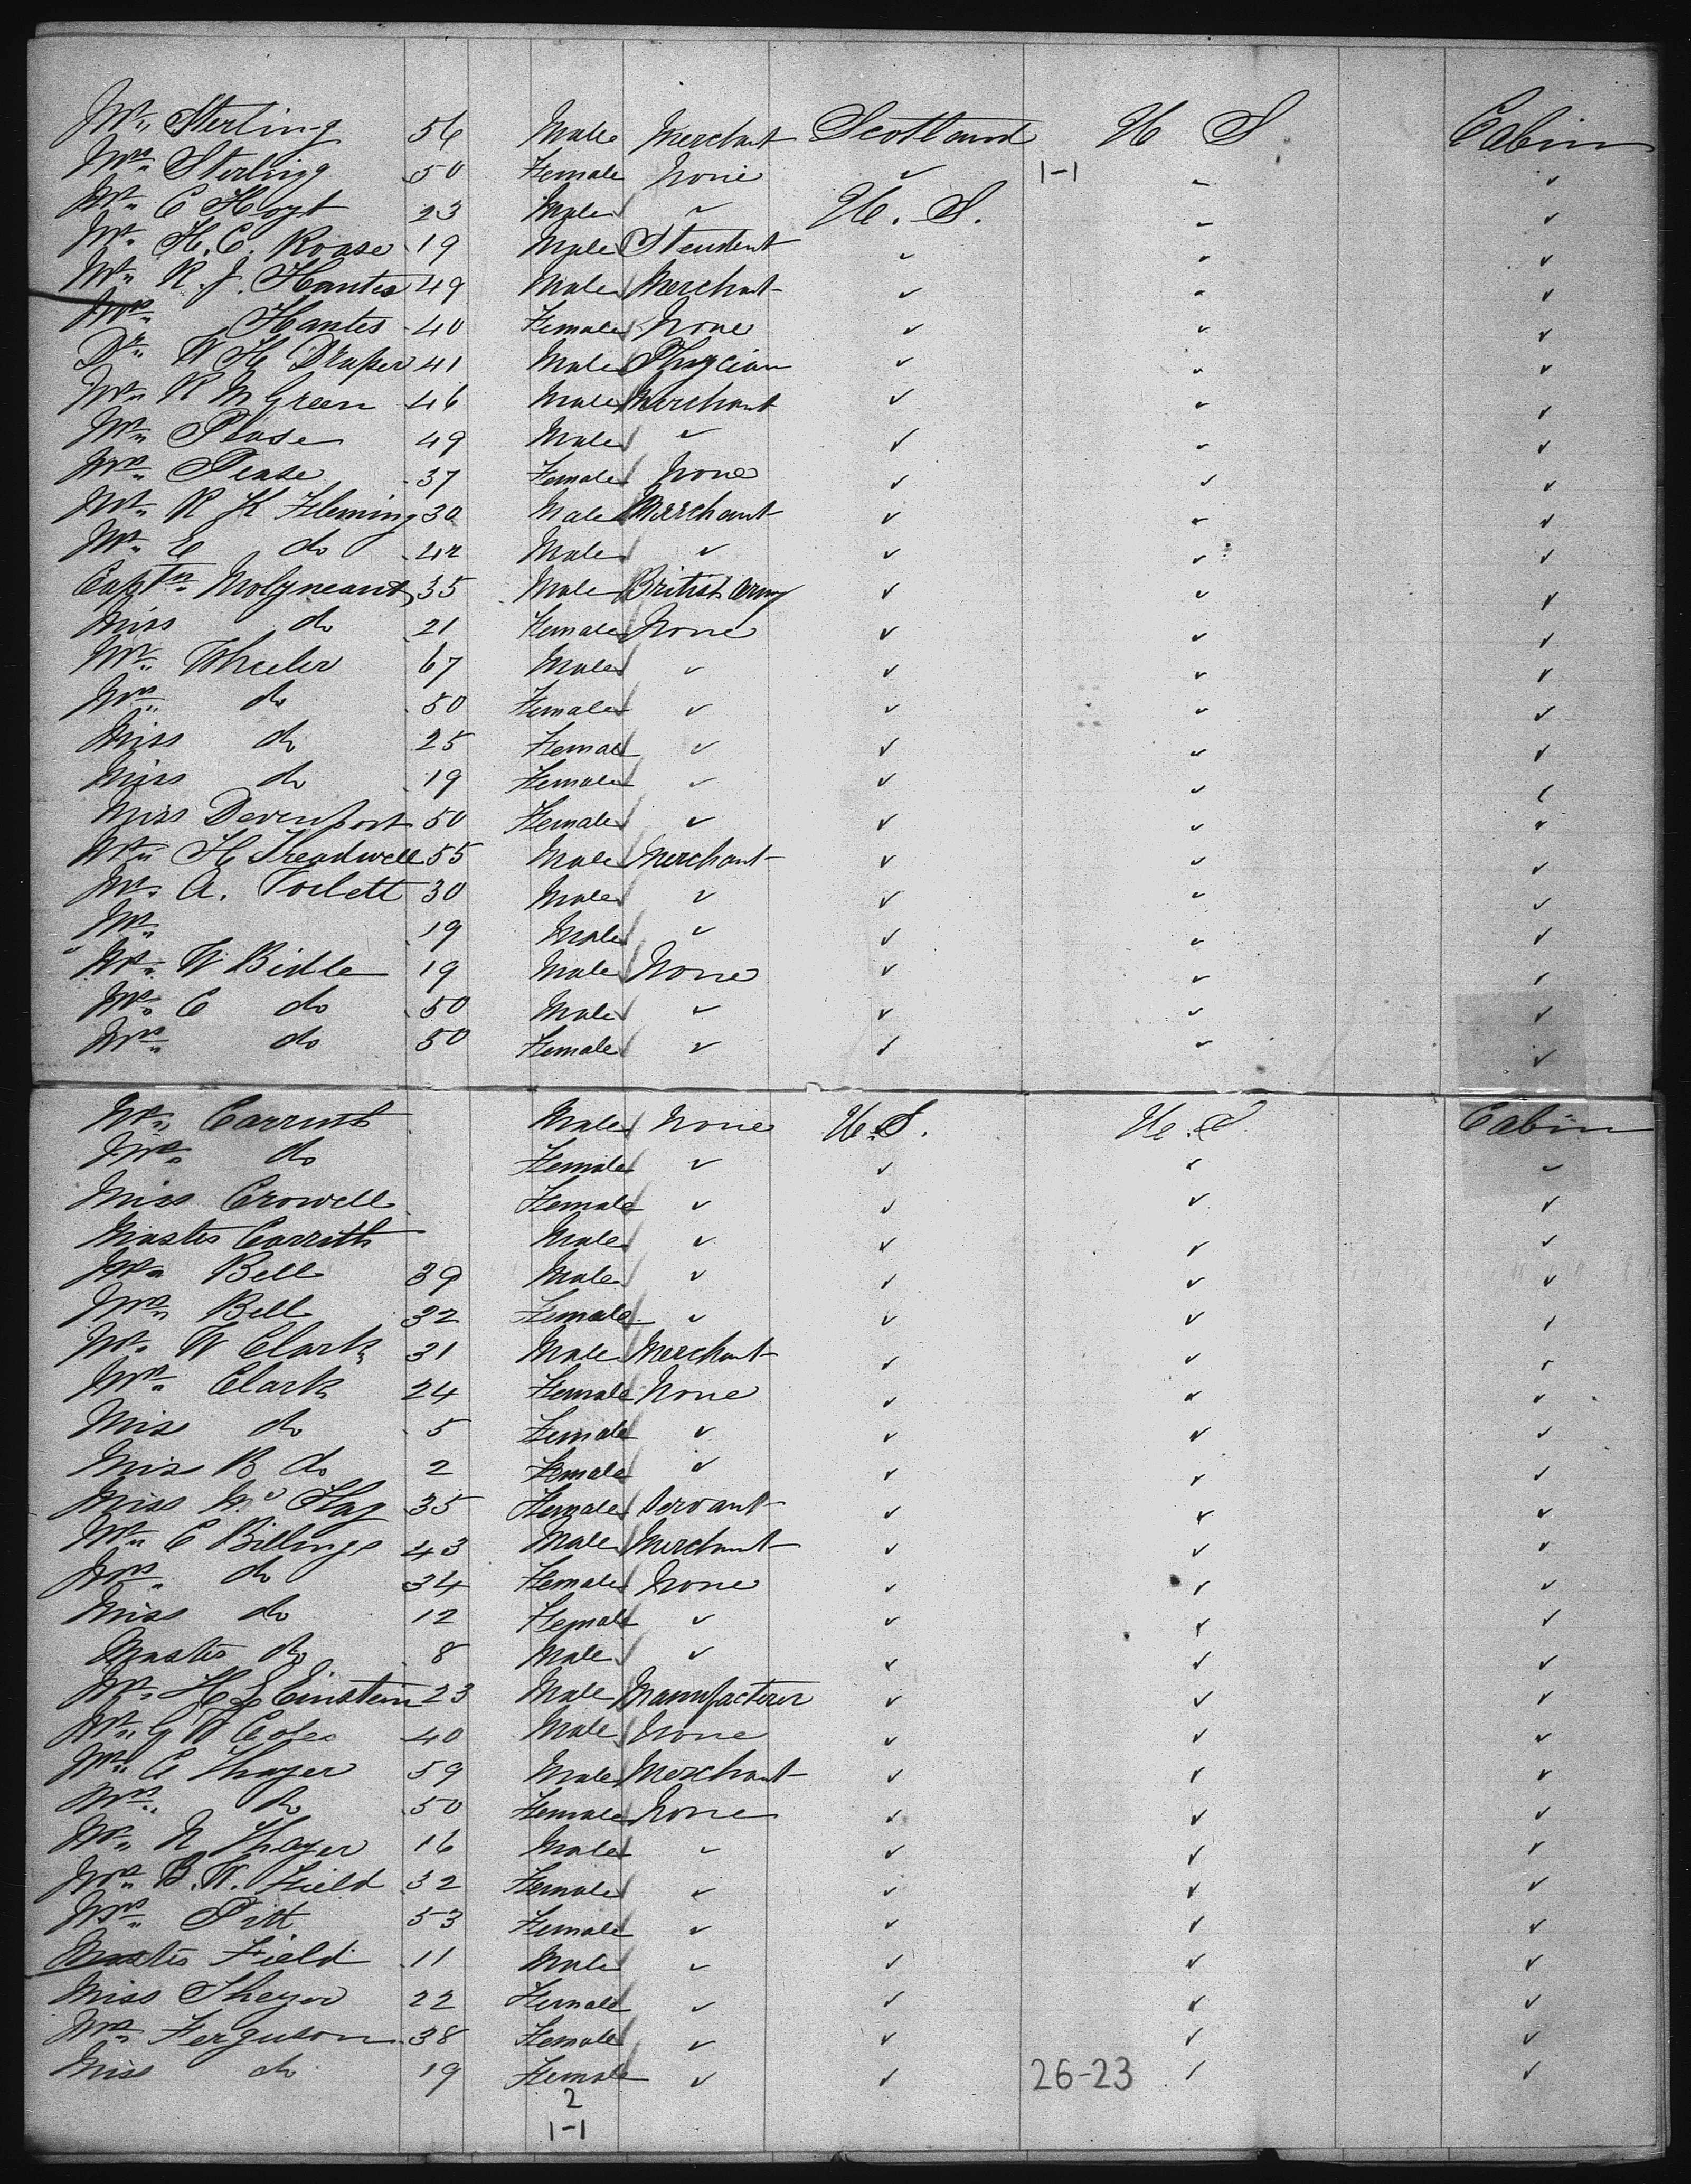 Mr. Sterling 56 Male Merchant Scotland U S Cabin
Mrs. Sterling 50 Female None " 1-1 " "
Mr. C Hoyt 23 Male " U. S. " "
Mr. H. C. Roase 19 Male Student " " "
Mr. R. J. Hantes 49 Male Merchant " " "
Mrs. Hantes 40 Female None " " "
Dr. W H Draper 41 Male Phycian " " "
Mr. R M Green 46 Male Merchant " " "
Mr. Pease 49 Male " " " "
Mrs. Pease 37 Female None " " "
Mr. R K Fleming 30 Male Merchant " " "
Mr. E do 42 Male " " " "
Captn. Molyneant 35 Male British Army " " "
Miss do 21 Female None " " "
Mr. Wheeler 67 Male " " " "
Mrs. do 50 Female " " " "
Miss do 25 Female " " " "
Miss do 19 Female " " " "
Miss Devenport 50 Female " " " "
Mr. H Treadwell 55 Male Merchant " " "
Mr. A. 30 Male " " " "
Mr. 19 Male " " " "
Mr. W Bidle 19 Male None " " "
Mr. C do 50 Male " " " "
Mrs. do 50 Female " " " "
Mr. Carruth Male None U.S. U.S. Cabin
Mrs. do Female " " " "
Miss Crowell Female " " " "
Master Carrith Male " " " "
Mr. Bell 39 Male " " " "
Mrs. Bell 32 Female " " " "
Mr. W Clark 31 Male Merchant " " "
Mrs. Clark 24 Female None " " "
Miss do 5 Female " " " "
Miss B do 2 Female " " " "
Miss Mc Kay 35 Female Servant " " "
Mr. C Billings 43 Male Merchant " " "
Mrs. do 34 Female None " " "
Miss do 12 Female " " " "
Master do 8 Male " " " "
Mr. H L Einstein 23 Male Manufacterer " " "
Mr. G W Coles 40 Male None " " "
Mr. C Thayer 59 Male Merchant " " "
Mrs. do 50 Female None " " "
Mr. N Thayer 16 Male " " " "
Mrs. B. W. Field 32 Female " " " "
Mrs. Pitt 53 Female " " " "
Master Field 11 Male " " " "
Miss Theyer 22 Female " " " "
Mrs. Ferguson 38 Female " " " "
Miss do 19 Female " " 26-23 " "
2
1-1